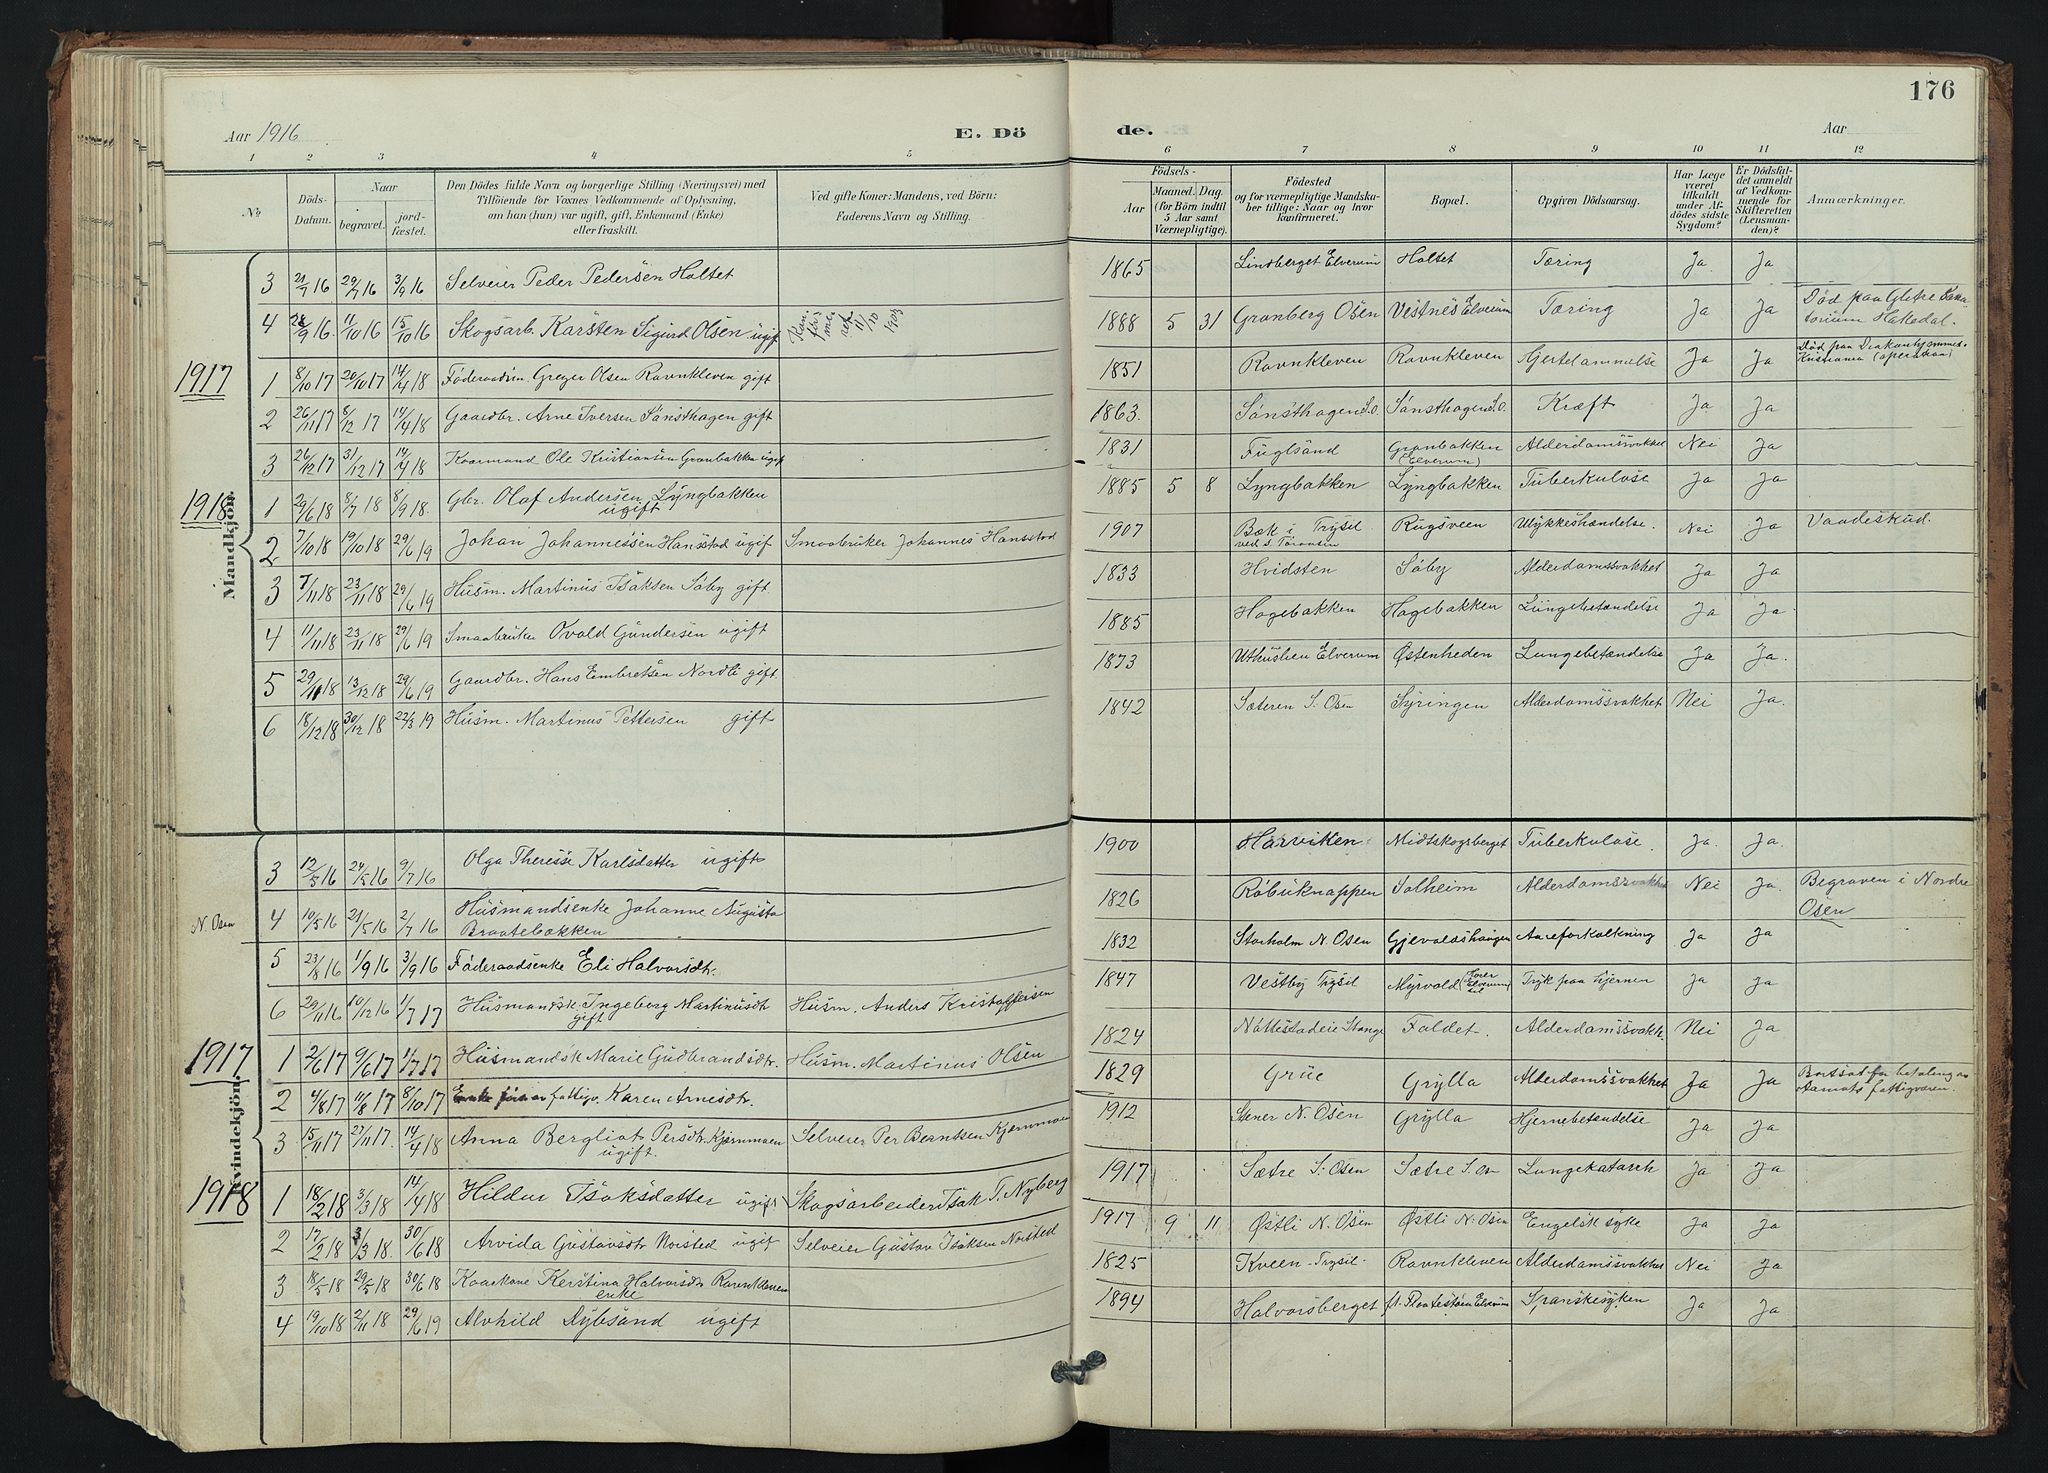 176
Aar 1916
E. Dö
de.
Aar
1 2 3 4 5 6 7 8 9 10 11 12
No
Döds-Datum.
Naar
begravet.
jord-fæstet.
Den Dödes fulde Navn og borgerlige Stilling (Næringsvei) med
Tilföiende for Voxnes Vedkommende af Oplysning,
om han (hun) var ugift, gift, Enkemand (Enke)
eller fraskilt.
Ved gifte Koner: Mandens, ved Börn:
Faderens Navn og Stilling.
Födsels-
Aar
Maaned. Dag.
(for Börn indtil
5 Aar samt
Værnepligtige).
Födested
og for værnepligtige Mandska-
ber tillige: Naar og hvor
konfirmeret.
Bopæl.
Opgiven Dödsaarsag.
Har Læge
været
tilkaldt
under Af-
dödes sidste
Sygdom?
Er Dödsfal-
det anmeldt
af Vedkom-
mende for
Skifteretten
(Lensman-
den)?
Anmærkninger.
Mandkjön.
3 21/7 16 29/7 16 3/9 16 Selveier Peder Pedersen Holtet 1865 Lindberget Elverum Holtet Tæring Ja Ja
4 28/9 16 11/10 16 15/10 16 Skogsarb. Karsten Sigurd Olsen ugift 11/10 1903 1888 5 31 Granberg Osen Vestnes Elverum Tæring Ja Ja Död paa Glitre Sana-
torium Hakedal.
1917
1 8/10 17 20/10 17 14/4 18 Föderaadsm. Greger Olsen Ravnkleven gift 1851 Ravnkleven Ravnkleven Hjertelammelse Ja Ja Död paa Diakonhjemmet
Kristiania (operation)
2 26/11 17 8/12 17 14/4 18 Gaardbr. Arne Iversen Sönsthagen gift 1863 Sönsthagen S.O. Sönsthagen S.O. Kræft Ja Ja
3 26/12 17 31/12 17 14/4 18 Kaarmand Ole Kristiansen Granbakken ugift 1831 Fuglsand Granbakken (Elverum) Alderdomssvakhet Nei Ja
1918
1 29/6 18 8/7 18 8/9 18. Gbr. Olaf Andersen Lyngbakken
ugift 1885 5 8 Lyngbakken Lyngbakken Tuberkulose Ja Ja
2 7/10 18 19/10 18 29/6 19 Johan Johannessen Hansstad ugif Smaabruker Johannes Hansstad 1907 Bæk i Trysil Rugsveen Ulykkeshændelse. Nei Ja Vaadeskud.
3 7/11 18 23/11 18 29/6 19 Husm. Martinus Isaksen Söby gift 1833 Hvidsten Söby Alderdomssvakhet Ja Ja
4 11/11 18 23/11 18 29/6 19 Smaabruker Ovald Gundersen ugift 1885 Hagebakken Hagebakken Lungebetændelse Ja Ja
5 29/11 18 13/12 18 29/6 19 Gaardbr. Hans Embretsen Nordli gift 1873 Uthuslien Elverum Østenheden Lungebetændelse Ja Ja.
6 18/12 18 30/12 18 22/3 19 Husm. Martinus Pettersen gift 1842 Sæteren S. Osen Kyringen Alderdomssvakhet Nei Ja.
Kvindekjön.
3 12/5 16 24/5 16 9/7 16 Olga Therese Karlsdatter ugift 1900 Harviken Midtskogsberget Tuberkulose. Ja. Ja.
N. Osen
4 10/5 16 21/5 16 2/7 16 Husmandsenke Johanne Augusta
Braatebakken 1826 Röbuknappen Solheim Alderdomssvakhet Nei Ja. Begraven i Nordre
Osen
5 23/8 16 1/9 16 3/9 16 Föderaadsenke Eli Halvorsdtr. 1832 Storholm N. Osen Gjevaldshaugen Aareforkalkning Ja Ja
6 29/11 16 10/12 16 1/7 17 Husmandsk. Ingeborg Martinusdtr
gift Husm. Anders Kristoffersen 1847 Vestby Trysil Myrvold Tryk paa hjernen Ja Ja
1917
1 2/6 17 9/6 17 1/7 17 Husmandsk Marie Gudbrandsdtr. Husm. Martinus Olsen 1824 Nöttestadeie Stange Faldet. Alderdomssvakh. Nei Ja
2 4/8 17 11/8 17 8/10 17 fattigv. Karen Arnesdtr. 1829 Grue Grylla Alderdomssvakhet Ja Ja Bortsat for betaling av
Aamots fattigvæsen.
3 15/11 17 27/11 17. 14/4 18 Anna Bergliot Persdtr Kjernmoen
ugift. Selveier Per Berntsen Kjernmoen 1912 Stener N. Osen Grylla Hjernebetændelse Ja Ja
1918
1 18/2 18 3/3 18 14/4 18 Hildur Isaksdatter ugift Skogsarbeider Isak T. Nyberg 1917 Sætre S. Osen Sætre S. Os Lungekatarrh Ja Ja
2 17/2 18 3/3 18. 30/6 18 Arvida Gustavsdtr Noisted ugif Selveier Gustav Isaksen Noisted 1917 9 11 Østli N. Osen Østli N. Osen Engelsk syke Ja Ja
3 18/5 18 29/5 18 30/6 18 Kaarkone Kerstina Halvorsdtr Ravnkleven
enke 1825 Kveen - Trysil - Ravnkleven Alderdomssvakhet Nei Ja
4 19/10 18 2/11 18 29/6 19 Alvhild Dybsand ugift 1894 Halvorsberget Elverum Spanskesyken Ja Ja